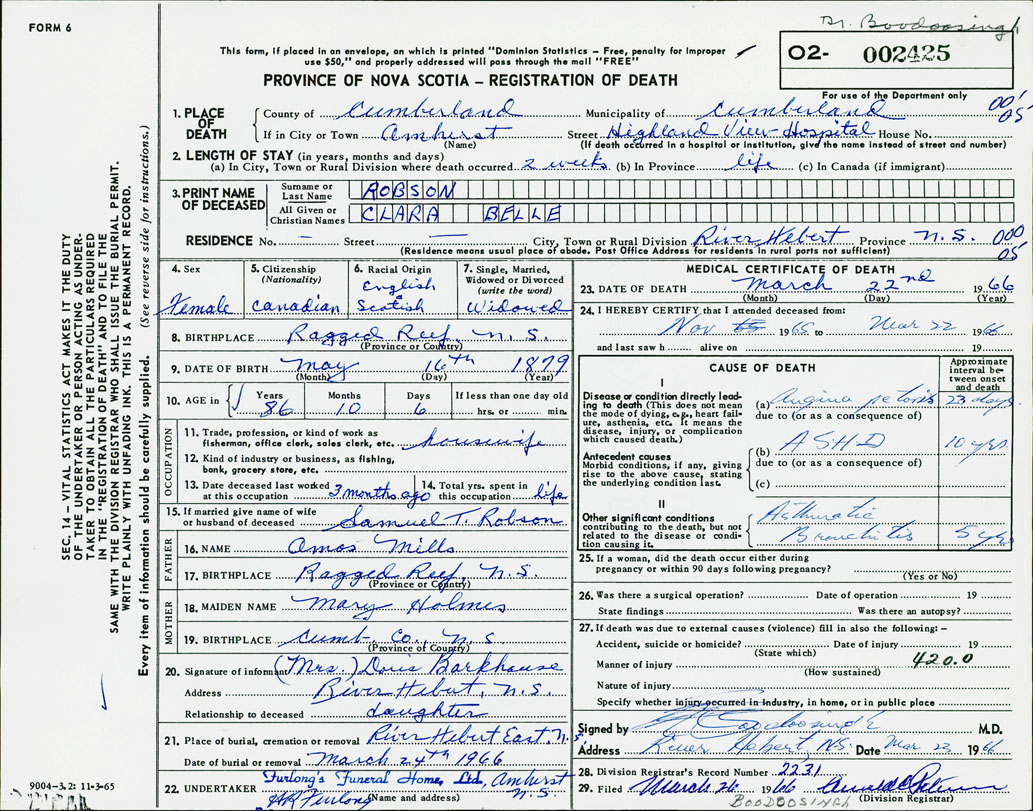 FORM 6
Dr. Boodoosingh
This form, if placed in an envelope, on which is printed "Dominion Statistics – Free, penalty for improper
use $50," and properly addressed will pass through the mail "FREE"
O2- 002425
PROVINCE OF NOVA SCOTIA – REGISTRATION OF DEATH
For use of the Department only
SEC. 14 – VITAL STATISTICS ACT MAKES IT THE DUTY
OF THE UNDERTAKER OR PERSON ACTING AS UNDER-
TAKER TO OBTAIN ALL THE PARTICULARS REQUIRED
IN THE "REGISTRATION OF DEATH" AND TO FILE THE
SAME WITH THE DIVISION REGISTRAR WHO SHALL ISSUE THE BURIAL PERMIT.
WRITE PLAINLY WITH UNFADING INK. THIS IS A PERMANENT RECORD.
Every item of information should be carefully supplied. (See reverse side for instructions.)
1. PLACE OF DEATH
County of Cumberland Municipality of Cumberland 001 05
If in City or Town Amherst Street Highland View Hospital House No.
(Name) (If death occurred in a hospital or institution, give the name instead of street and number)
2. LENGTH OF STAY (in years, months and days)
(a) In City, Town or Rural Division where death occurred 2 weeks (b) In Province life (c) In Canada (if immigrant)
3. PRINT NAME OF DECEASED
Surname or Last Name ROBSON
All Given or Christian Names CLARA BELLE
RESIDENCE No. – Street – City, Town or Rural Division River Hebert Province N.S. 000 05
(Residence means usual place of abode. Post Office Address for residents in rural parts not sufficient)
4. Sex Female
5. Citizenship (Nationality) Canadian
6. Racial Origin English & Scotish
7. Single, Married, Widowed or Divorced (write the word) Widowed
8. BIRTHPLACE Ragged Reef, N.S.
(Province or Country)
9. DATE OF BIRTH May 16th 1879
(Month) (Day) (Year)
10. AGE in Years 86 Months 10 Days 6 If less than one day old hrs. or min.
OCCUPATION
11. Trade, profession or kind of work as fisherman, office clerk, sales clerk, etc. housewife
12. Kind of industry or business, as fishing, bank, grocery store, etc.
13. Date deceased last worked at this occupation 3 months ago
14. Total yrs. spent in this occupation life
15. If married give name of wife or husband of deceased Samuel T. Robson
FATHER
16. NAME Amos Mills
17. BIRTHPLACE Ragged Reef, N.S.
(Province or Country)
MOTHER
18. MAIDEN NAME Mary Holmes
19. BIRTHPLACE Cumb. Co., N.S
(Province of Country)
20. Signature of informant (Mrs.) Doris Barkhouse
Address River Hebert, N.S.
Relationship to deceased daughter
21. Place of burial, cremation or removal River Hebert East, N.S.
Date of burial or removal March 24th 1966
22. UNDERTAKER Furlong's Funeral Home, Ltd, Amherst N.S
(Name and address)
9004-3.2: 11-3-65
MEDICAL CERTIFICATE OF DEATH
23. DATE OF DEATH March 22nd 1966
(Month) (Day) (Year)
24. I HEREBY CERTIFY that I attended deceased from:
Nov 1965 to Mar 22 1966
and last saw h alive on 19
CAUSE OF DEATH
Approximate interval between onset and death
I
Disease or condition directly leading to death (This does not mean the mode of dying, e.g., heart failure, asthenia, etc. It means the disease, injury, or complication which caused death.)
(a) Angina pectoris 23 days
due to (or as a consequence of)
Antecedent causes
Morbid conditions, if any, giving rise to the above cause, stating the underlying condition last.
(b) ASHD 10 yrs
due to (or as a consequence of)
(c)
II
Other significant conditions
contributing to the death, but not related to the disease or condition causing it.
Asthmatic
Bronchitis 5 yrs
25. If a woman, did the death occur either during
pregnancy or within 90 days following pregnancy?
(Yes or No)
26. Was there a surgical operation? Date of operation 19
State findings Was there an autopsy?
27. If death was due to external causes (violence) fill in also the following:–
Accident, suicide or homicide? Date of injury 19
(State which)
Manner of injury 420.0
(How sustained)
Nature of injury
Specify whether injury occurred in industry, in home, or in public place
Signed by Boodoosingh M.D.
Address River Hebert, NS. Date Mar 23 1966
28. Division Registrar's Record Number 2231
29. Filed March 26 1966
(Division Registrar)
BOODOOSINGH